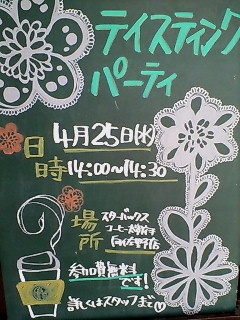 テイスティング
パーティ
日時 4月25日(水)
14:00〜14:30
場所 スターバックス
コーヒー
店
参加費無料
です!
詳しくはスタッフまで♡